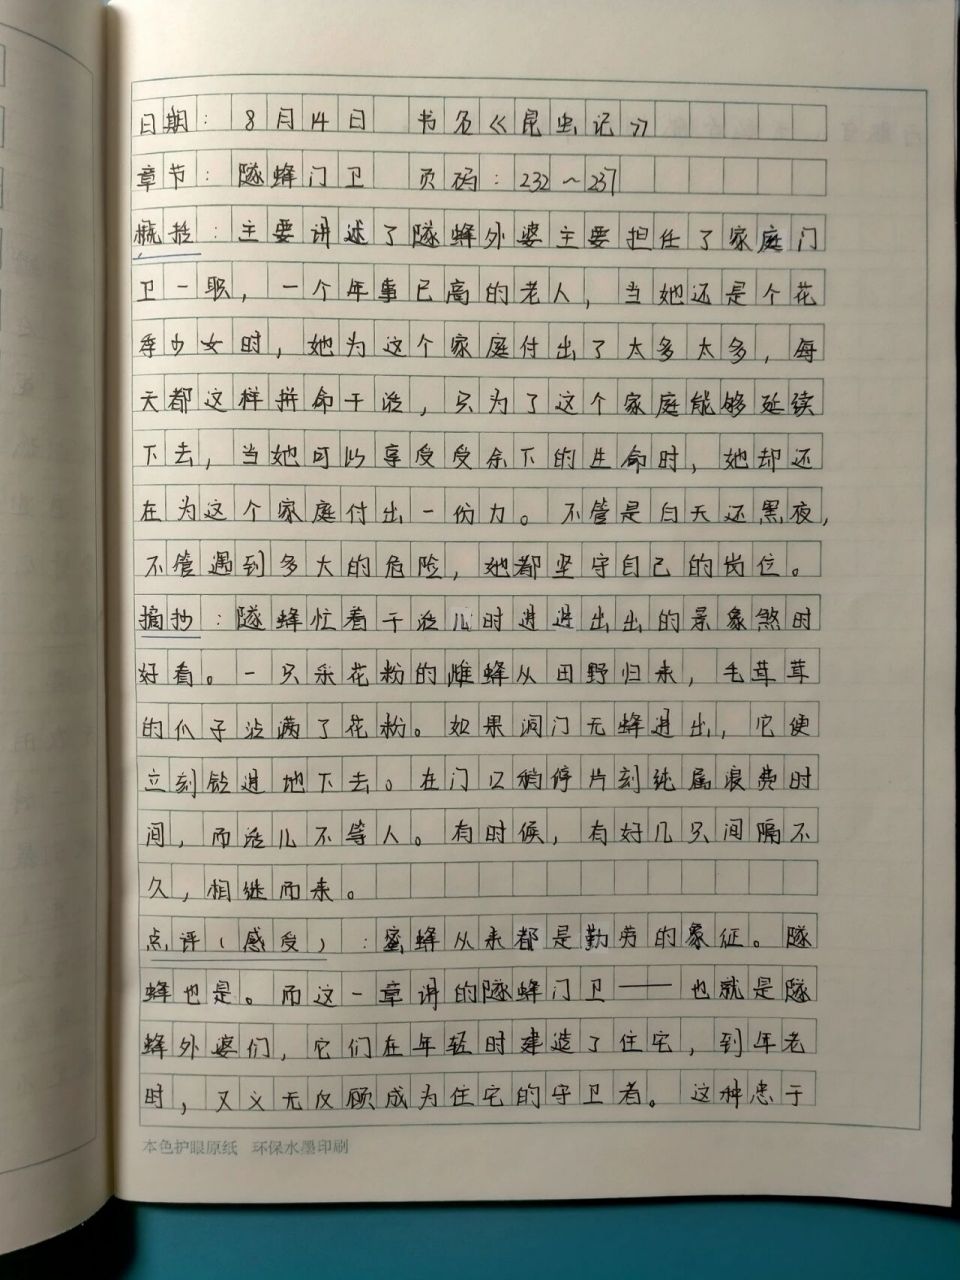 日期：8月14日 书名《昆虫记》
章节：隧蜂门卫 页码：232～237
概括：主要讲述了隧蜂外婆主要担任了家庭门
卫一职，一个年事已高的老人，当她还是个花
季少女时，她为这个家庭付出了太多太多，每
天都这样拼命干活，只为了这个家庭能够延续
下去，当她可以享受受余下的生命时，她却还
在为这个家庭付出一份力。不管是白天还黑夜，
不管遇到多大的危险，她都坚守自己的岗位。
摘抄：隧蜂忙着干活儿时进进出出的景象煞时
好看。一只采花粉的雌蜂从田野归来，毛茸茸
的爪子沾满了花粉。如果洞门无蜂进出，它便
立刻钻进地下去。在门口稍停片刻纯属浪费时
间，而活儿不等人。有时候，有好几只间隔不
久，相继而来。
点评（感受）：蜜蜂从来都是勤劳的象征。隧
蜂也是。而这一章讲的隧蜂门卫——也就是隧
蜂外婆们，它们在年轻时建造了住宅，到年老
时，又义无反顾成为住宅的守卫者。这种忠于
本色护眼原纸 环保水墨印刷